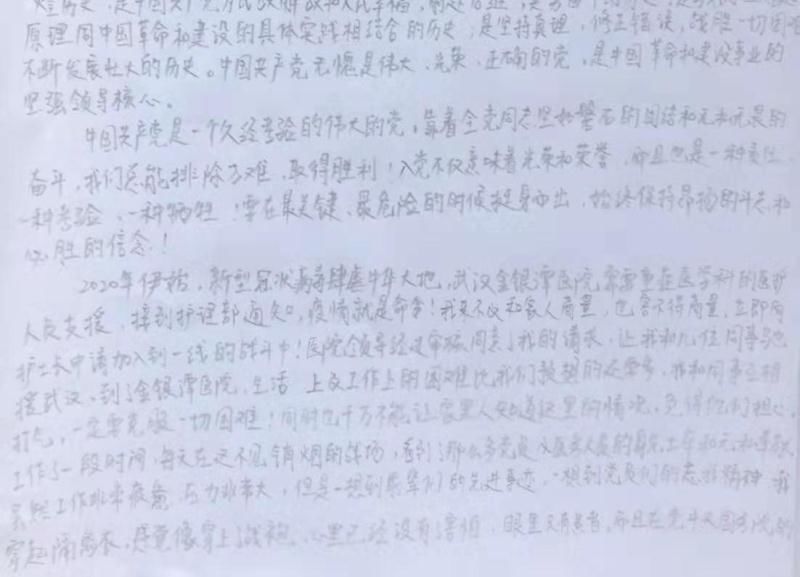 原理同中国革命和建设的具体实践相结合的历史，是坚持真理，修正错误，战胜一切困难
不断发展壮大的历史。中国共产党无愧是伟大、光荣、正确的党，是中国革命和建设事业的
坚强领导核心。
中国共产党是一个久经考验的伟大的党，靠着全党同志坚如磐石的团结和无私无畏的
奋斗，我们总能排除万难，取得胜利！入党不仅意味着光荣和荣誉，而且也是一种责任
一种考验、一种牺牲！要在最关键、最危险的时候挺身而出，始终保持昂扬的斗志和
必胜的信念！
2020年伊始，新型冠状病毒肆虐中华大地，武汉金银潭医院需要重症医学科的医护
人员支援，接到护理部通知，疫情就是命令！我来不及和家人商量，也容不得商量，立即向
护士长申请加入到一线的战斗中！医院领导经过审核同意了我的请求，让我和几位同事驰
援武汉，到了金银潭医院，生活上及工作上的困难比我们预想的还要多，我和同事互相
打气，一定要克服一切困难！同时也千万不能让家里人知道这里的情况，免得他们担心，
工作了一段时间，每天在这不见硝烟的战场，看到那么多党员
虽然工作非常疲惫，压力非常大，但是一想到前辈们的先进事迹，一想到党员们的忘我精神，我
穿起隔离衣，感觉像穿上战袍，心里已经没有害怕，眼里只有患者，而且在党中央国务院的